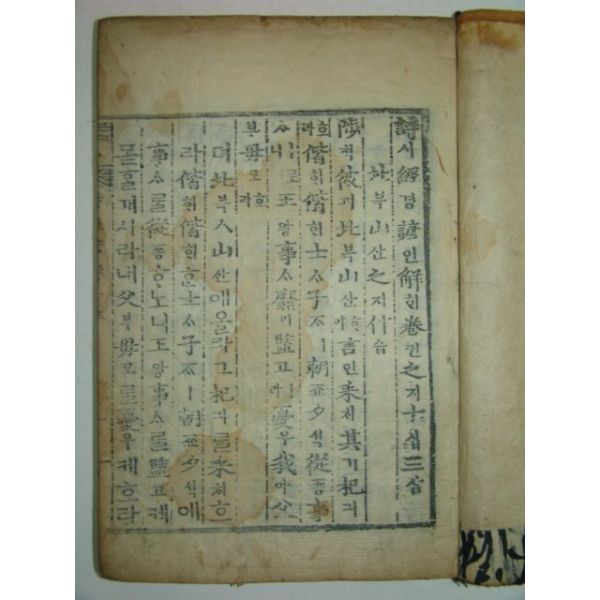 詩시經경諺언解ᄒᆡ卷권之지十십三삼
北븍山산之지什습
陟텩彼피北븍山산ᄒᆞ야言언采ᄎᆡ其기杞긔
호라偕ᄒᆡ偕ᄒᆡ士ᄉᆞ子ᄌᆞㅣ朝죠夕셕從죵事
ᄉᆞᄒᆞ노니王왕事ᄉᆞ靡미盬고ㅣ라憂우我아父
부母모호라
뎌北븍ㅅ山산애올라그杞긔ᄅᆞᆯ采ᄎᆡ호
라偕ᄒᆡ偕ᄒᆡᄒᆞᆫ士ᄉᆞ子ᄌᆞㅣ朝죠夕셕에
事ᄉᆞᄅᆞᆯ從죵ᄒᆞ노니王왕事ᄉᆞᄅᆞᆯ盬고케
몯ᄒᆞᆯ거시라내父부母모ᄅᆞᆯ憂우케호라